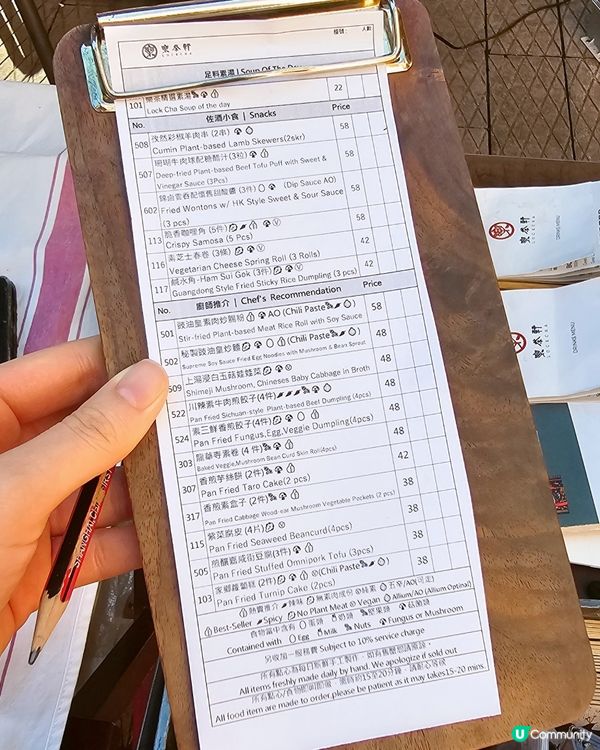 樂茶軒
LOCKCHA
檯號: 人數
足料素湯 | Soup Of The Day
101 樂茶精選素湯 22
Lock Cha Soup of the day
No. 佐酒小食 | Snacks Price
508 孜然彩椒羊肉串 (2串) 58
Cumin Plant-based Lamb Skewers(2skr)
507 珊瑚牛肉球配糖醋汁(3粒) 58
Deep-fried Plant-based Beef Tofu Puff with Sweet & Vinegar Sauce (3Pcs)
602 錦鹵雲吞配懷舊甜酸醬 (3件) (Dip Sauce AO) 58
Fried Wontons w/ HK Style Sweet & Sour Sauce (3 pcs)
113 脆香咖喱角 (5件) Ⓥ 58
Crispy Samosa (5 Pcs)
116 素芝士春卷 (3條) Ⓥ 42
Vegetarian Cheese Spring Roll (3 Rolls)
117 鹹水角-Ham Sui Gok (3件) Ⓥ 42
Guangdong Style Fried Sticky Rice Dumpling (3 pcs)
No. 廚師推介 | Chef's Recommendation Price
501 豉油皇素肉炒腸粉 AO (Chili Paste) 58
Stir-fried Plant-based Meat Rice Roll with Soy Sauce
502 秘製豉油皇炒麵 (Chili Paste) 58
Supreme Soy Sauce Fried Egg Noodles with Mushroom & Bean Sprout
509 上湯浸白玉菇娃娃菜 58
Shimeji Mushroom, Chineses Baby Cabbage in Broth
522 川辣素牛肉煎餃子(4件) 48
Pan Fried Sichuan-style Plant-based Beef Dumpling (4pcs)
524 素三鮮香煎餃子(4件) 48
Pan Fried Fungus,Egg,Veggie Dumpling(4pcs)
303 龍華寺素卷 (4件) 48
Baked Veggie,Mushroom Bean Curd Skin Roll(4pcs)
307 香煎芋絲餅 (2件) 42
Pan Fried Taro Cake(2 pcs)
317 香煎素盒子 (2件) 38
Pan Fried Cabbage Wood-ear Mushroom Vegetable Pockets (2 pcs)
115 紫菜腐皮 (4片) 38
Pan Fried Seaweed Beancurd(4pcs)
505 煎釀嘉咸街豆腐(3件) 38
Pan Fried Stuffed Omnipork Tofu (3pcs)
103 家鄉蘿蔔糕 (2件) (Chili Paste) 38
Pan Fried Turnip Cake (2pcs)
熱賣推介 辣味 無素肉成份 純素 五辛/AO(可走)
Best-Seller Spicy No Plant Meat Vegan Allium/AO (Allium Optinal)
食物當中含有 蛋類 奶類 堅果類 菇菌類
Contained with Egg Milk Nuts Fungus or Mushroom
另收加一服務費 Subject to 10% service charge
所有點心為每日新鮮手工製作，如有售罄懇請原諒。
All items freshly made daily by hand. We apologize if sold out
所有點心/食物即叫即做，需時約15至20分鐘，請耐心等候
All food item are made to order,please be patient as it may takes15-20 mins
SHANGHAI CHI
樂茶軒
LOCKCHA
DRINKS MENU
樂茶軒
LOCKCHA
DRINKS MENU
U Community